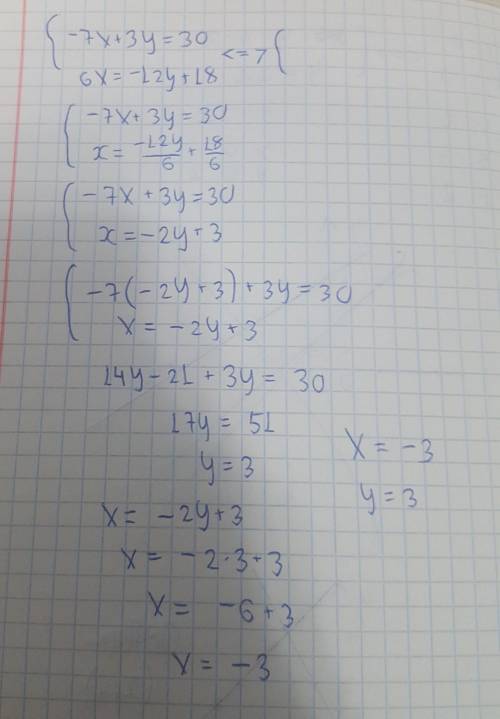 { -7x+3y=30
6x=-12y+18 <=> {
{ -7x+3y=30
x= -12y/6 + 18/6
{ -7x+3y=30
x=-2y+3
{ -7(-2y+3)+3y=30
x=-2y+3
14y-21+3y= 30
17y= 51
y=3
x= -2y+3
x= -2·3+3
x= -6+3
x= -3
x= -3
y=3